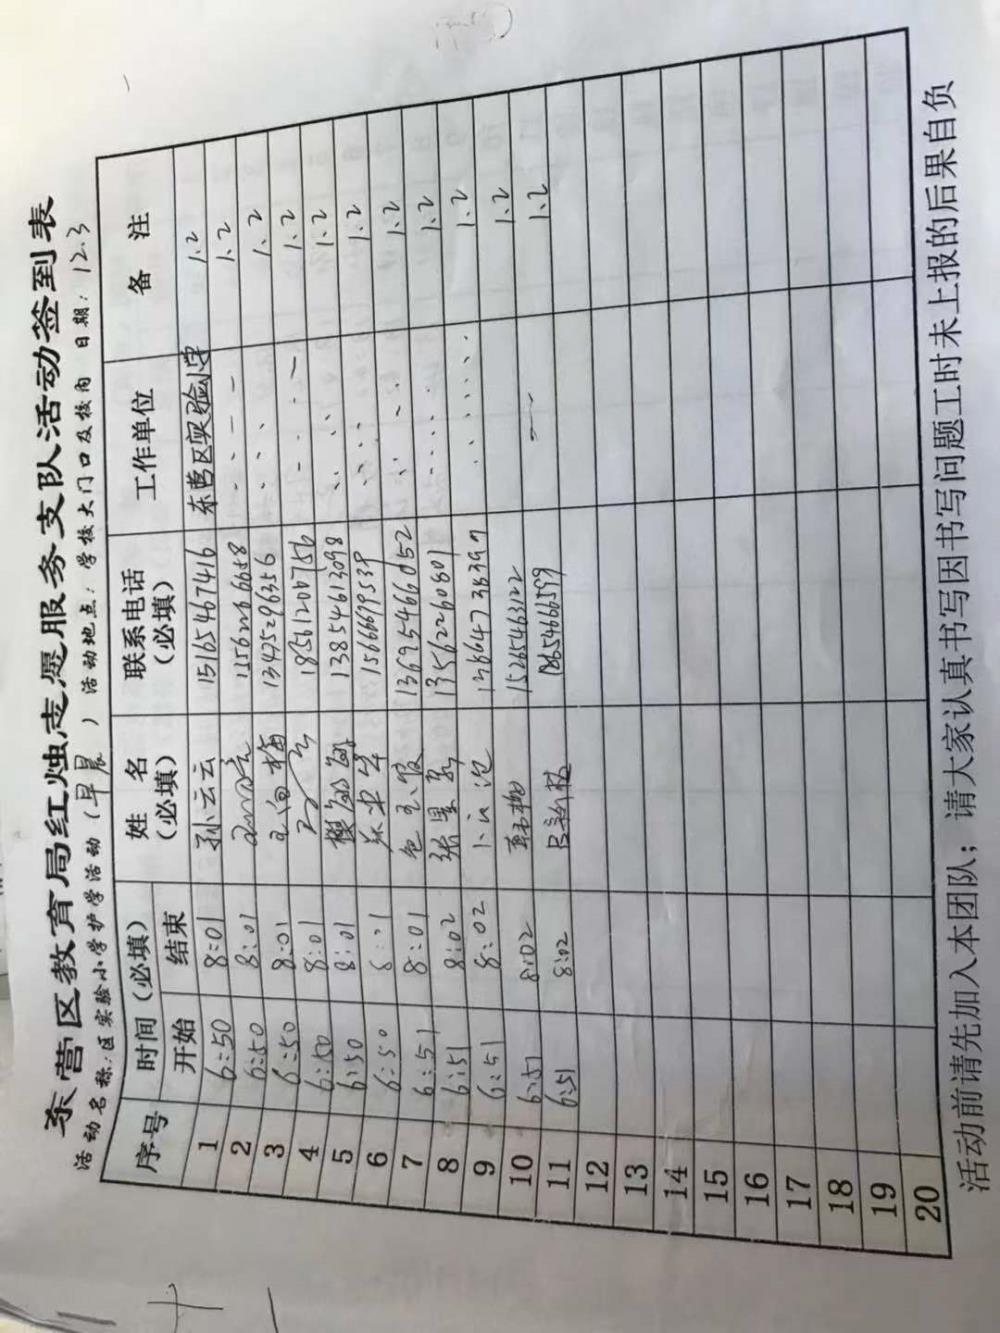 东营区教育局红烛志愿服务支队活动签到表
活动名称:区实验小学护学活动(早晨) 活动地点:学校大门口及校内 日期:12.3
序号 时间(必填) 姓名(必填) 联系电话(必填) 工作单位 备注
开始 结束
1 6:50 8:01 孙云云 15165467416 东营区实验小学 1.2
2 6:50 8:01 1.2
3 6:50 8:01 13475296356 1.2
4 6:50 8:01 18561200756 1.2
5 6:50 8:01 13854613098 1.2
6 6:50 8:01 15666619539 1.2
7 6:51 8:01 13695466052 1.2
8 6:51 8:02 13562260801 1.2
9 6:51 8:02 1.2
10 6:51 8:02 15265463122 1.2
11 6:51 8:02 18654666599 1.2
12
13
14
15
16
17
18
19
20
活动前请先加入本团队;请大家认真书写因书写问题工时未上报的后果自负